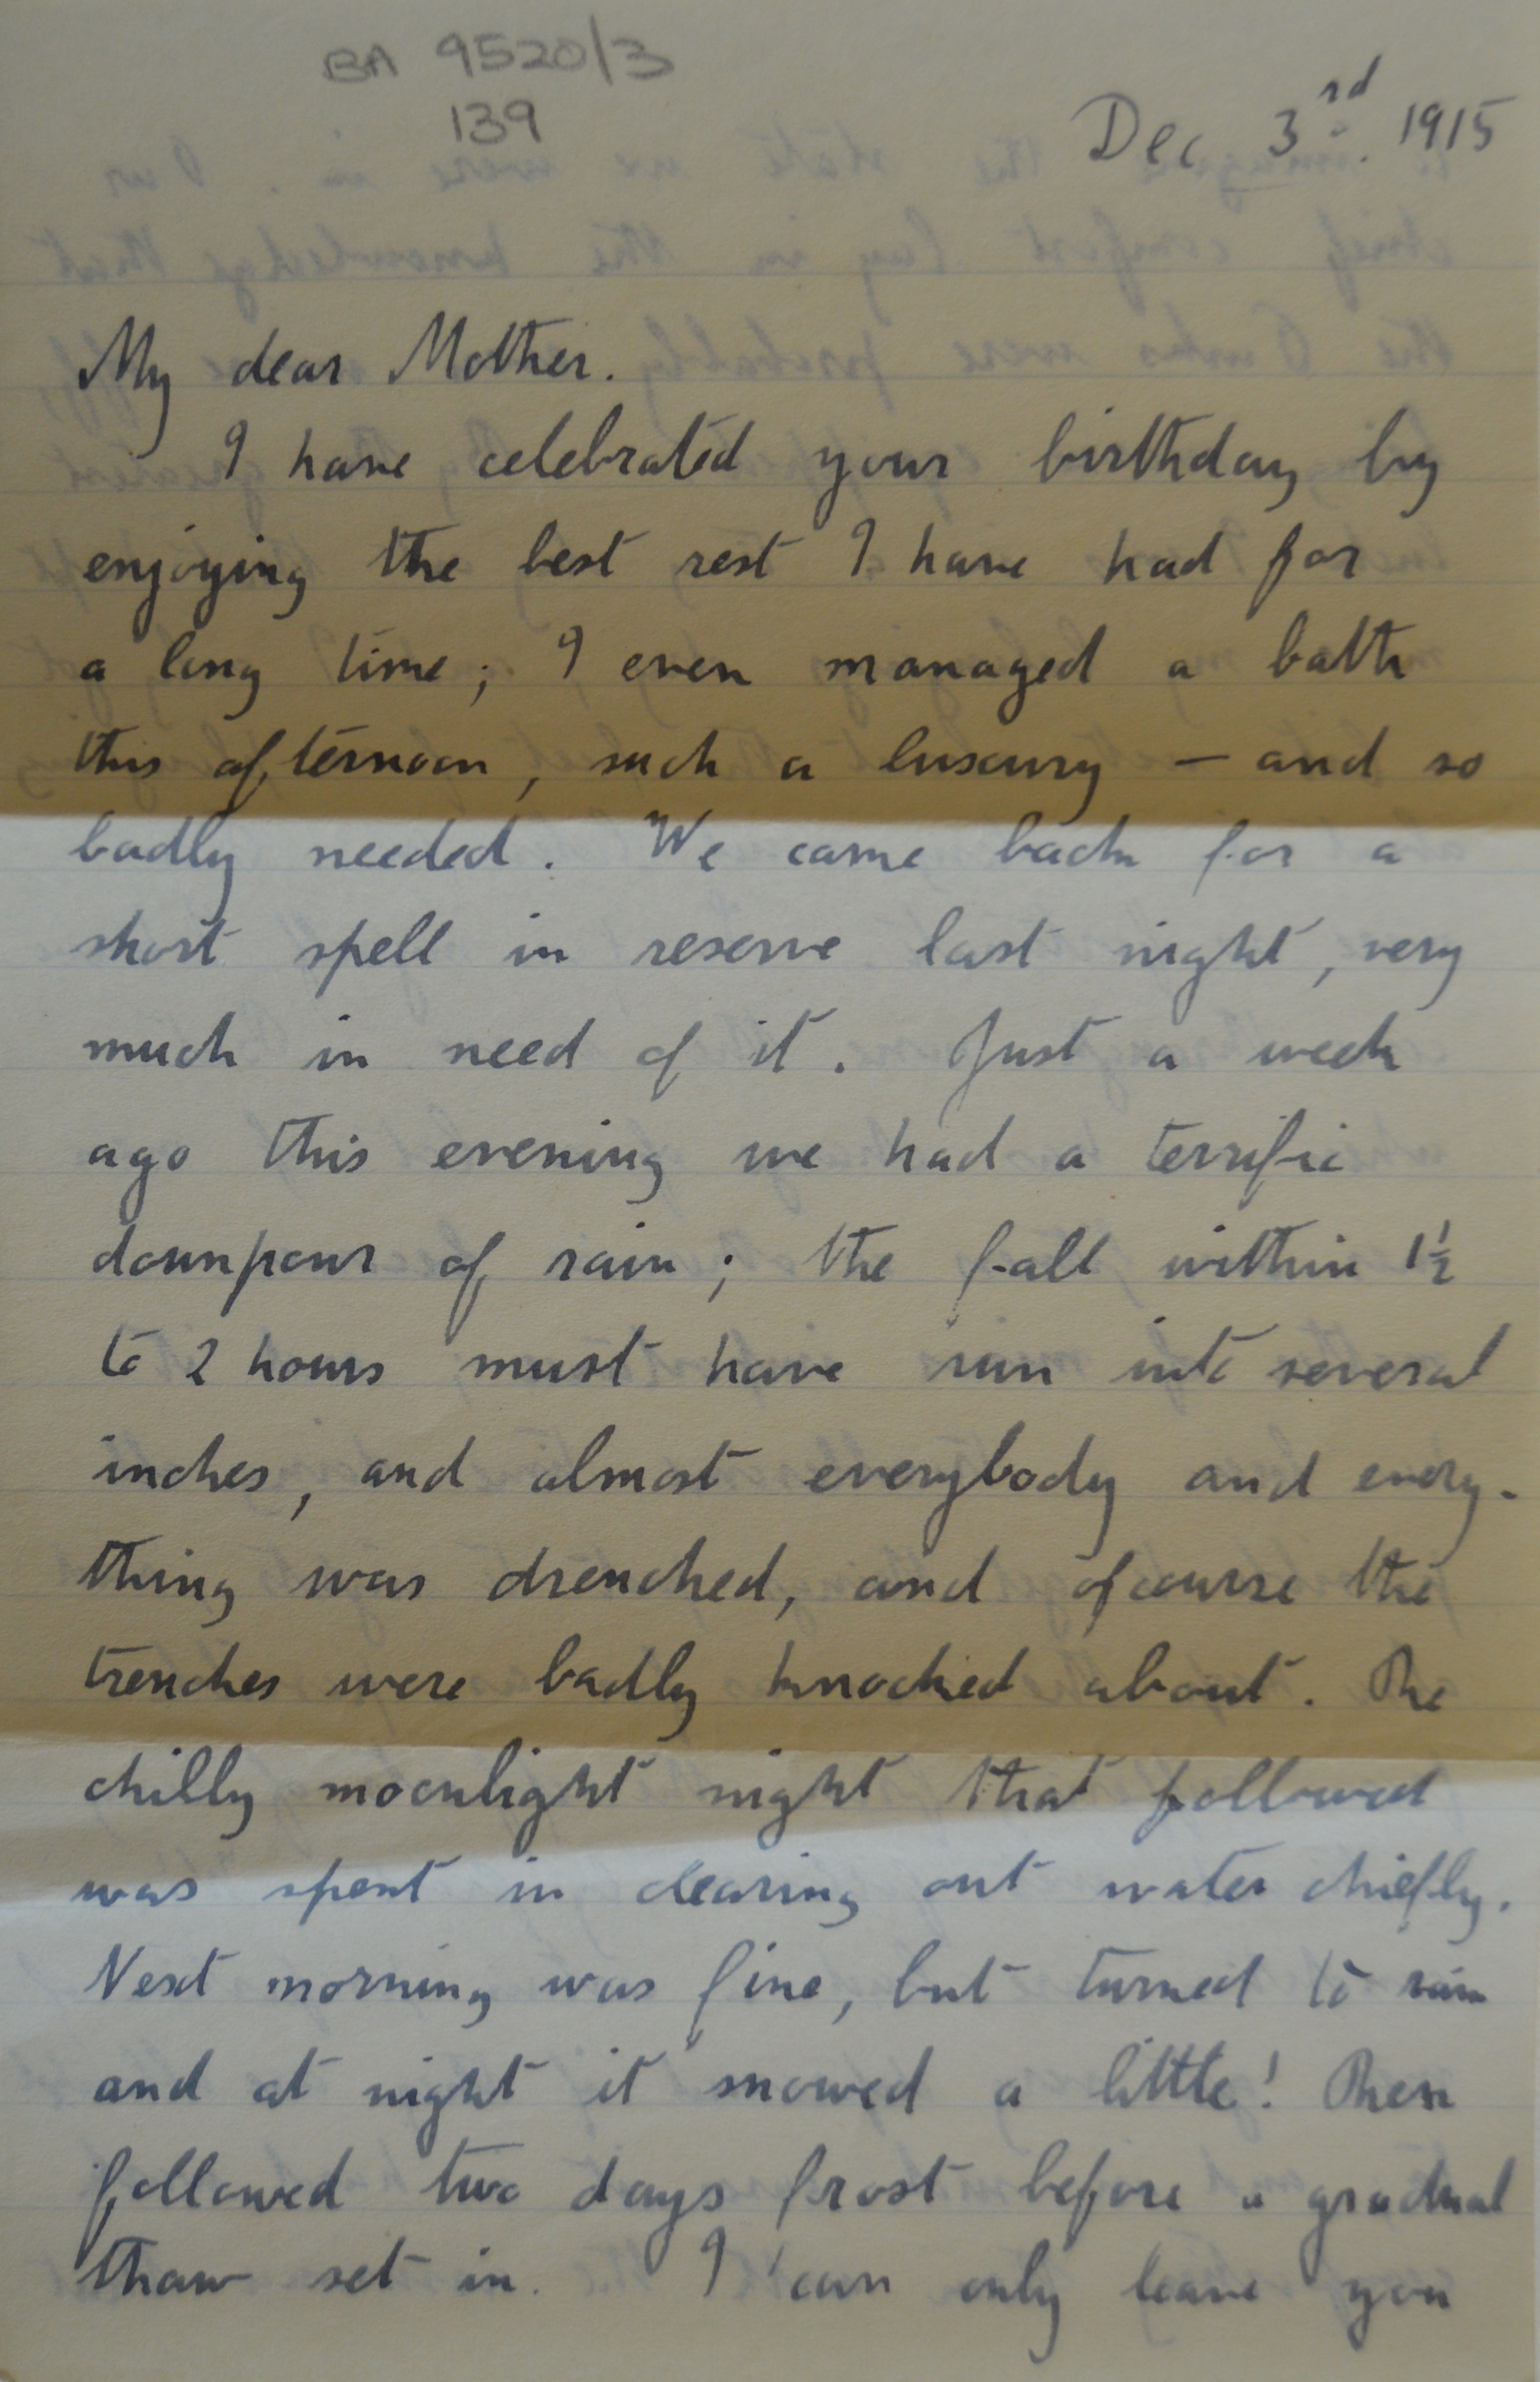 BA 9520/3
139
Dec 3rd. 1915
My dear Mother.
I have celebrated your birthday by
enjoying the best rest I have had for
a long time; I even managed a bath
this afternoon, such a luxury - and so
badly needed. We came back for a
short spell in reserve last night, very
much in need of it. Just a week
ago this evening we had a terrific
downpour of rain; the fall within 1½
to 2 hours must have run into several
inches, and almost everybody and every-
thing was drenched, and ofcourse the
trenches were badly knocked about. The
chilly moonlight night that followed
was spent in clearing out water chiefly.
Next morning was fine, but turned to rain
and at night it snowed a little! Then
followed two days frost before a gradual
thaw set in. I can only leave you